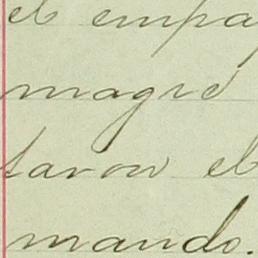 el empa
magre
taron el
mando.